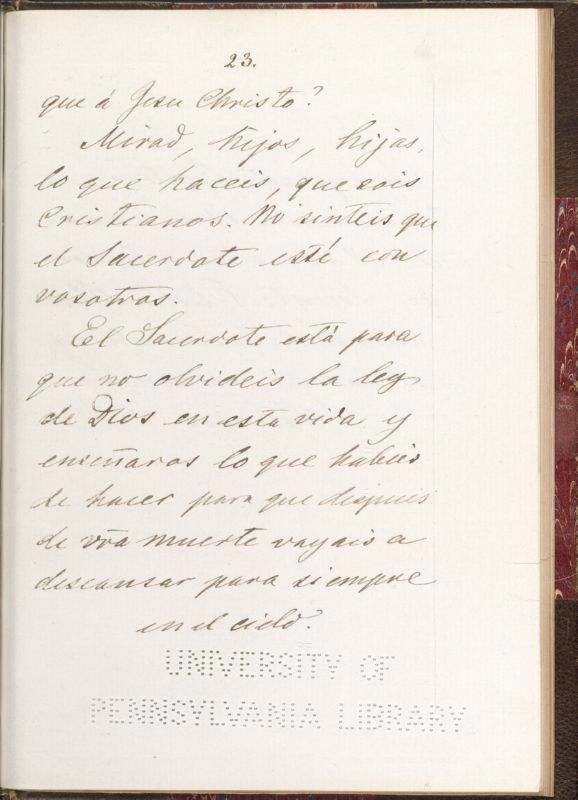 23.
que á Jesu Christo?
Mirad, hijos, hijas,
lo que haceis, que sois
Cristianos. No sinteis que
el Sacerdote esté con
vosotros.
El Sacerdote está para
que no olvideis la ley
de Dios en esta vida y
enseñaros lo que habeis
de hacer para que despues
de vr̃a muerte vayais a
descansar para siempre
en el cielo.
UNIVERSITY OF
PENNSYLVANIA LIBRARY